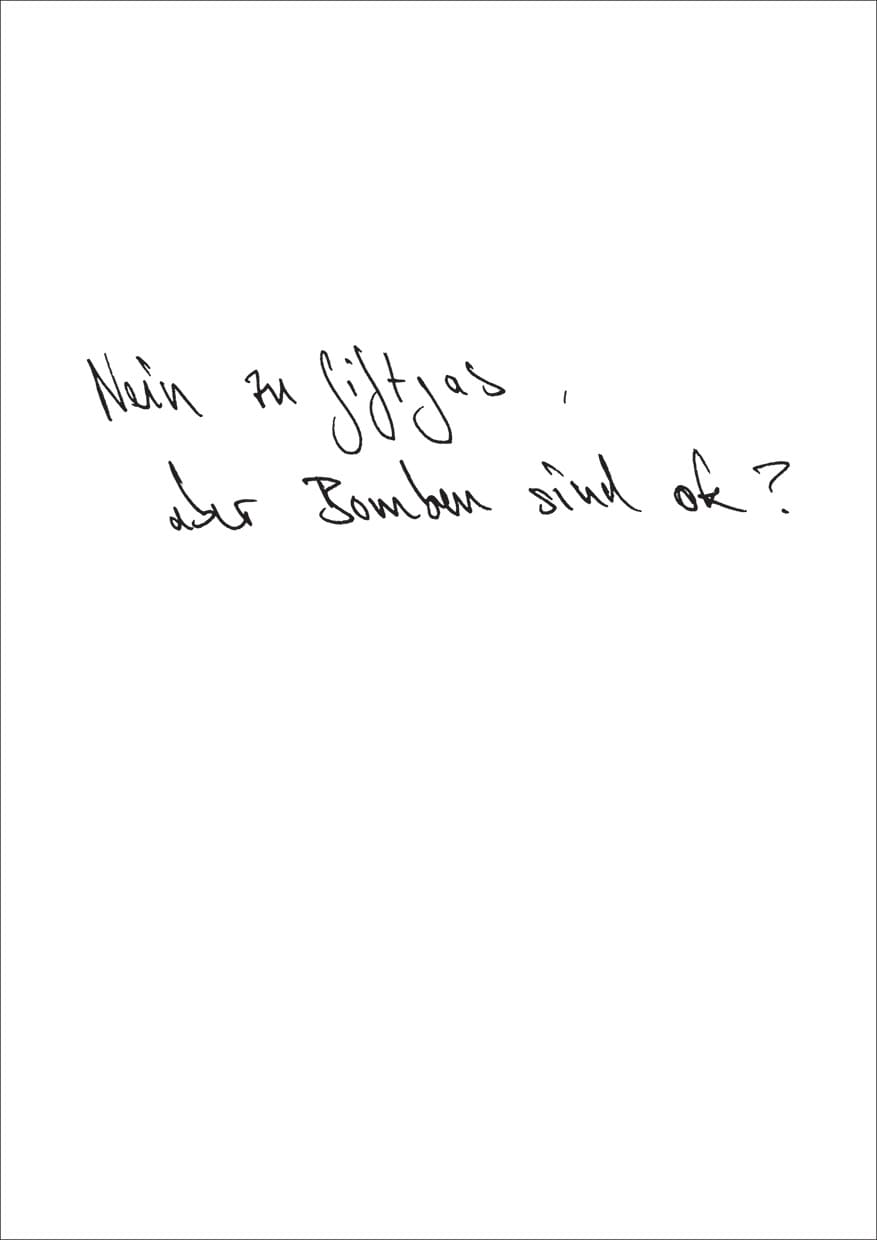 Nein zu Giftgas,
aber Bomben sind ok?